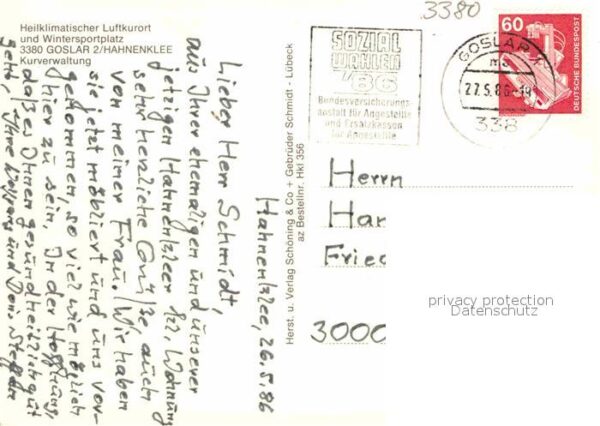 Heilklimatischer Luftkurort
und Wintersportplatz
3380 GOSLAR 2/HAHNENKLEE
Kurverwaltung
Hahnenklee, 26.5.86
Lieber Herr Schmidt,
aus Ihrer ehemaligen und unserer
jetzigen Hahnenkleer Wohnung
sehr herzliche Grüße, auch
von meiner Frau. Wir haben
sie jetzt möbliert und uns vor-
genommen, so viel wie möglich
hier zu sein. In der Hoffnung,
daß es Ihnen gesundheitlich gut
geht, Ihre und
Herst. u. Verlag Schöning & Co + Gebrüder Schmidt - Lübeck
az Bestellnr. Hkl 356
3380
SOZIAL
WAHLEN
'86
Bundesversicherungs-
anstalt für Angestellte
und Ersatzkassen
für Angestellte
GOSLAR 1
27.5.86-19
338
60
DEUTSCHE BUNDESPOST
Herrn
Han
Fried
3000
privacy protection
Datenschutz